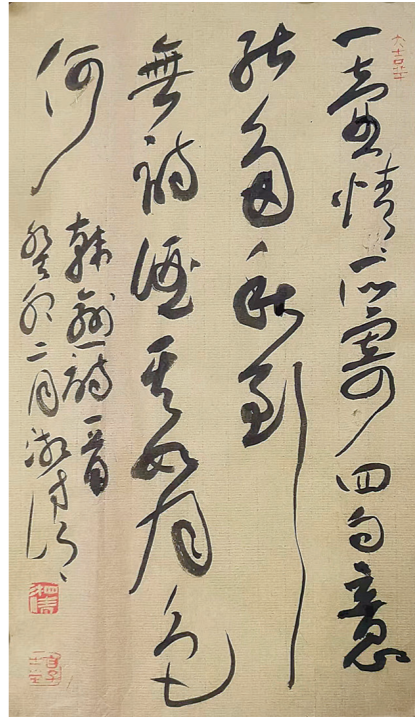 大吉羊
一壺情所寄四句意
能多秋到
無詩酒其如月色
何
詩一首
癸卯二月